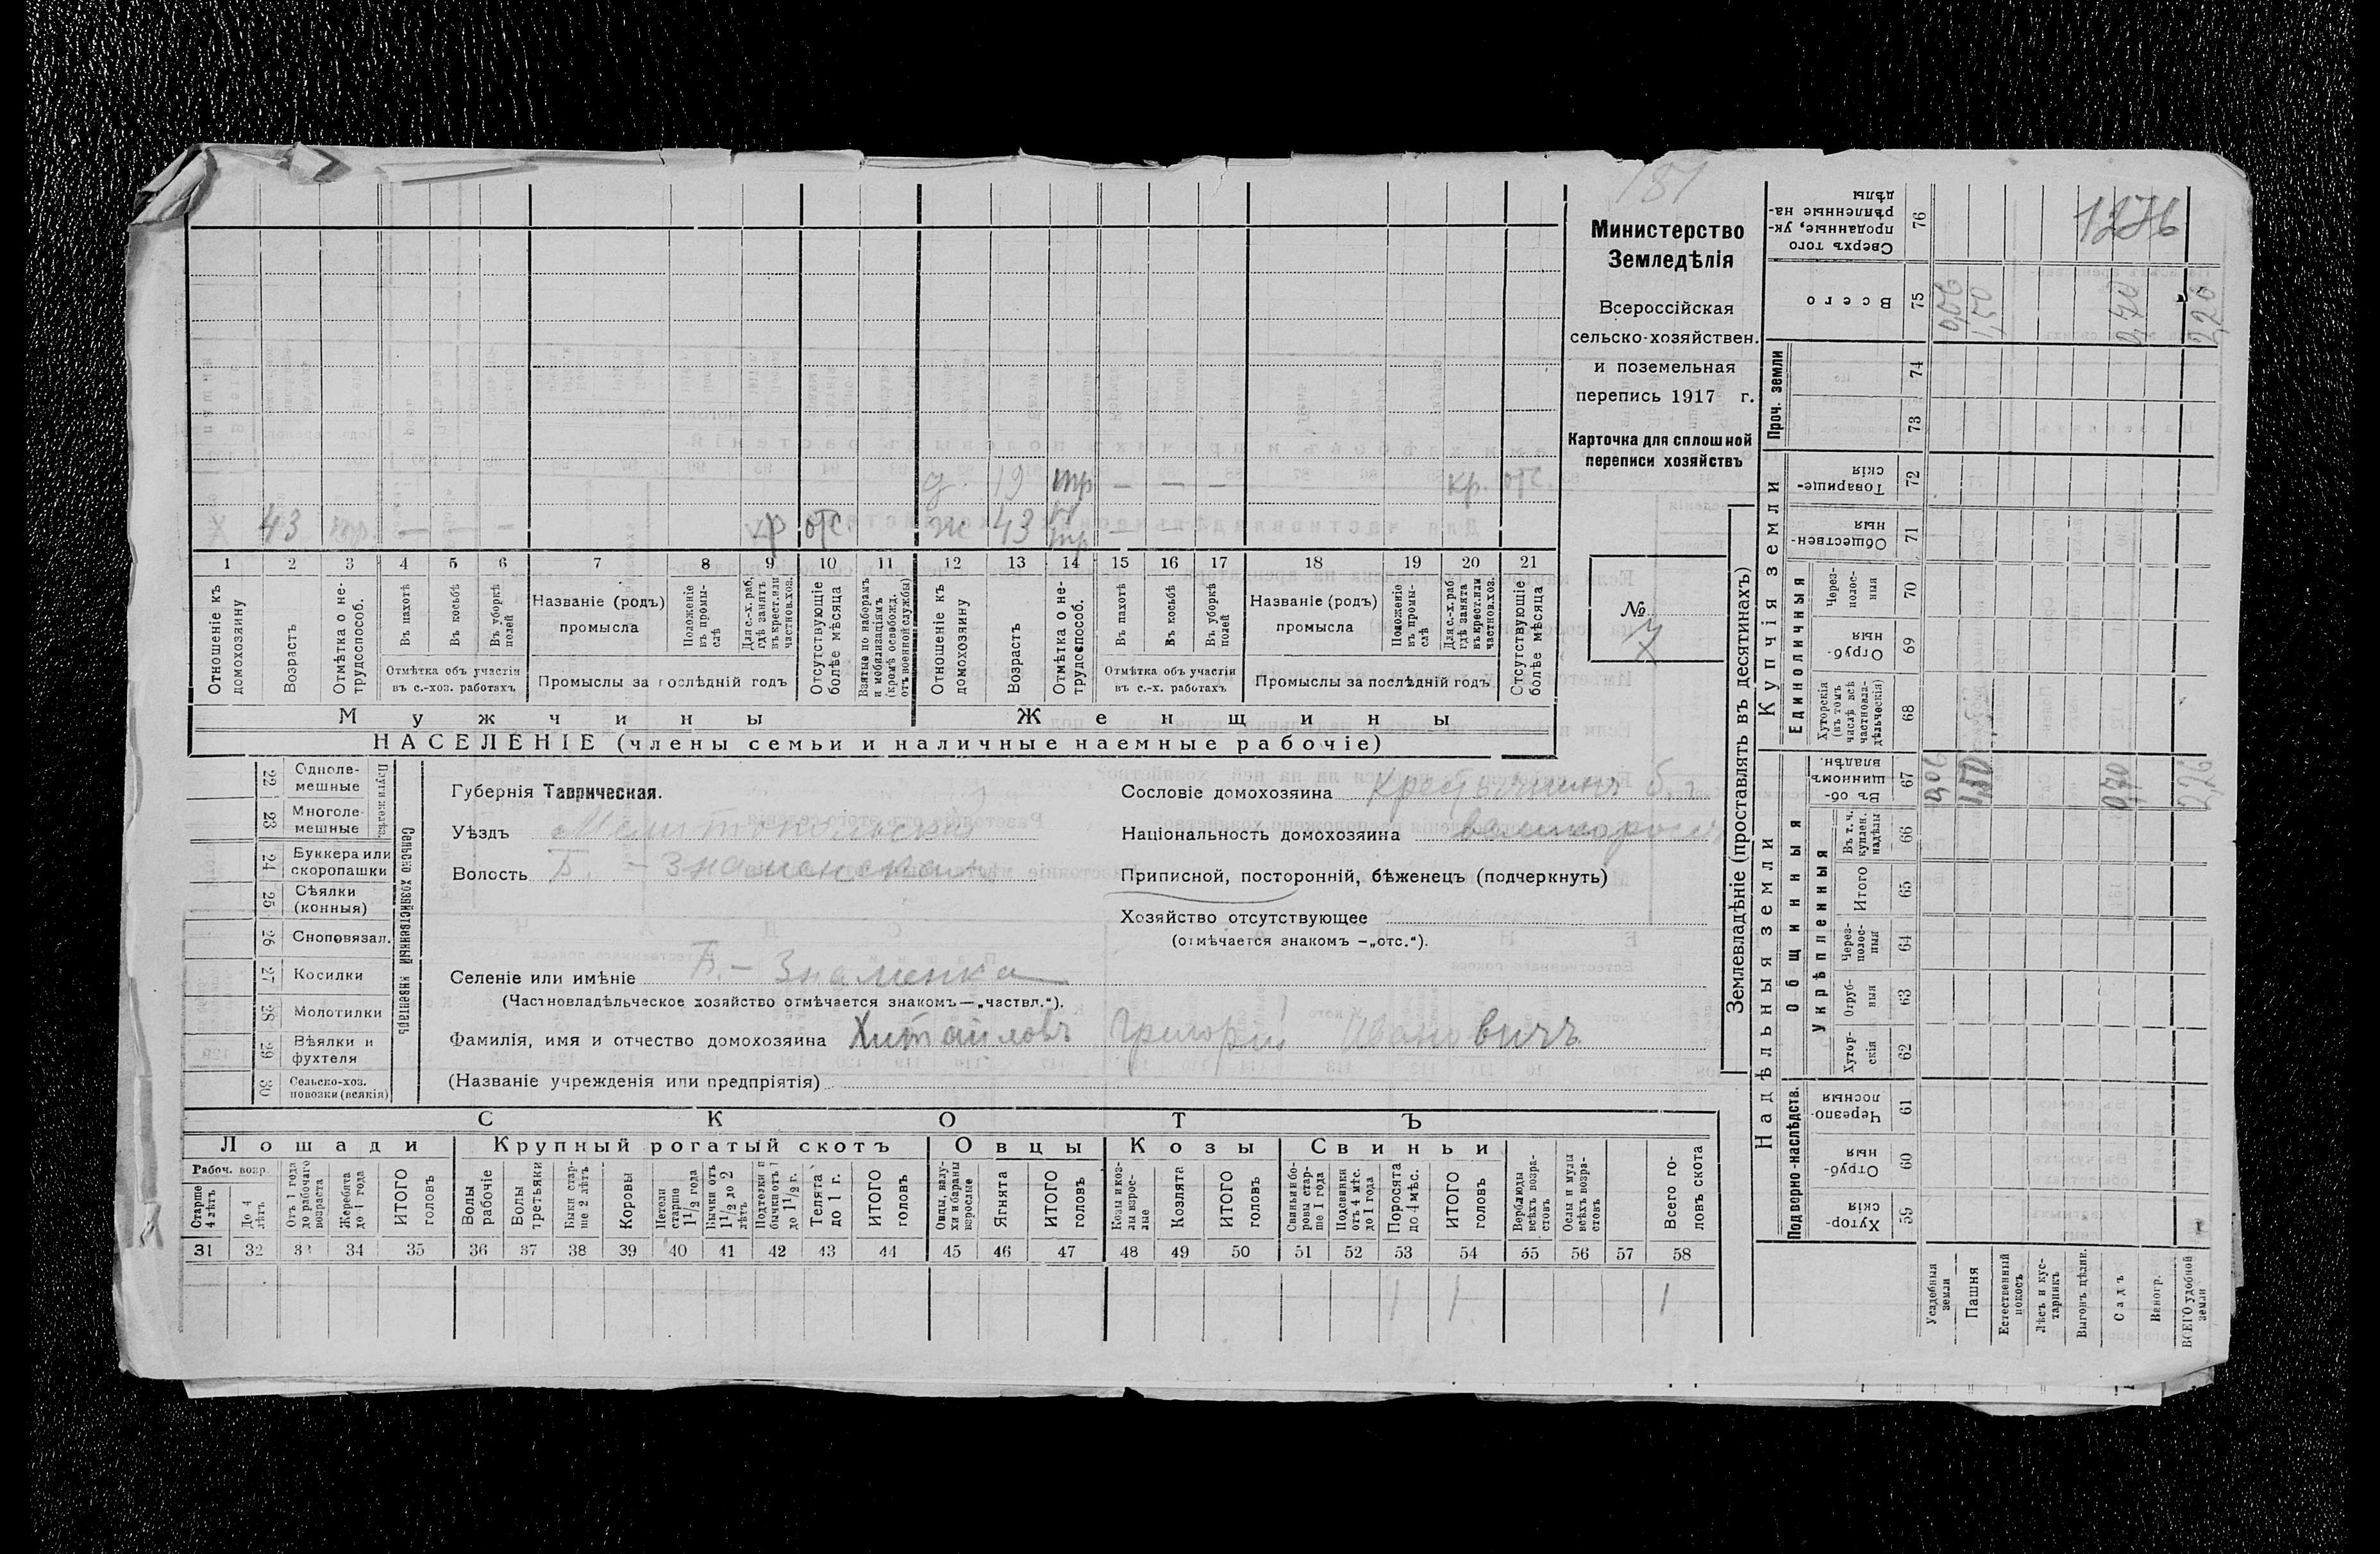 181
Министерство
Земледѣлія
Всероссійская
сельско-хозяйствен.
и поземельная
перепись 1917 г.
Карточка для сплошной
переписи хозяйствъ
№
1276
д. 19 тр — — — кр. отс.
х 43 — — — кр отс. ж 43 — —
1 2 3 4 5 6 7 8 9 10 11 12 13 14 15 16 17 18 19 20 21
Отношеніе къ домохозяину
Возрастъ
Отмѣтка о не-трудоспособ.
Въ пахотѣ
Въ косьбѣ
Въ уборкѣ полей
Отмѣтка объ участіи въ с.-хоз. работахъ
Названіе (родъ) промысла
Положеніе въ промы-слѣ
Для с.-х. раб, гдѣ занятъ въ крест. или частнов. хоз.
Промыслы за послѣдній годъ
Отсутствующіе болѣе мѣсяца
Взятые по наборамъ и мобилизаціямъ (кромѣ освобожд. отъ военной службы)
Отношеніе къ домохозяину
Возрастъ
Отмѣтка о не-трудоспособ.
Въ пахотѣ
Въ косьбѣ
Въ уборкѣ полей
Отмѣтка объ участіи въ с.-х. работахъ
Названіе (родъ) промысла
Положеніе въ промы-слѣ
Для с.-х. раб гдѣ занята въ крест. или частнов. хоз.
Промыслы за послѣдній годъ
Отсутствующіе болѣе мѣсяца
Мужчины Женщины
НАСЕЛЕНІЕ (члены семьи и наличные наемные рабочіе)
Сельско хозяйственный инвентарь
22 Одноле-мешные
23 Многоле-мешные
24 Буккера или скоропашки
25 Сѣялки (конныя)
26 Сноповязал.
27 Косилки
28 Молотилки
29 Вѣялки и фухтеля
30 Сельско-хоз. повозки (всякія)
Губернія Таврическая.
Уѣздъ Мелитопольскій
Волость Б. - Знаменская
Селеніе или имѣніе Б. - Знаменка
(Частновладѣльческое хозяйство отмѣчается знакомъ — „частвл.“).
Фамилія, имя и отчество домохозяина Хитайловъ Григорій Ивановичъ
(Названіе учрежденія или предпріятія)
Сословіе домохозяина Крестьянинъ
Національность домохозяина великоросъ
Приписной, посторонній, бѣженецъ (подчеркнуть)
Хозяйство отсутствующее
(отмѣчается знакомъ — „отс.“).
СКОТЪ
Лошади Крупный рогатый скотъ Овцы Козы Свиньи
Рабоч. возр.
Старше 4 лѣтъ
До 4 лѣтъ
Отъ 1 года до рабочаго возраста
Жеребята до 1 года
ИТОГО головъ
Волы рабочіе
Волы третьяки
Быки стар-ше 2 лѣтъ
Коровы
Нетели старше 1 1/2 года
Бычки отъ 1 1/2 до 2 лѣтъ
Подтелки и бычки отъ 1 до 1 1/2 г.
Телята до 1 г.
ИТОГО головъ
Овцы, валу-хи и бараны взрослые
Ягнята
ИТОГО головъ
Козы и коз-лы взрос-лые
Козлята
ИТОГО головъ
Свиньи и бо-ровы стар-ше 1 года
Подсвинки отъ 4 мѣс. до 1 года
Поросята до 4 мѣс.
ИТОГО головъ
Верблюды всѣхъ возра-стовъ
Ослы и мулы всѣхъ возра-стовъ
Всего го-ловъ скота
31 32 33 34 35 36 37 38 39 40 41 42 43 44 45 46 47 48 49 50 51 52 53 54 55 56 57 58
1 1 1
Землевладѣніе (проставлять въ десятинахъ)
Надѣльныя земли Купчія земли Проч. земли
Подворно-наслѣдств.
Общинныя
Укрѣпленныя
Единоличныя
76 Сверхъ того проданные, ук-рѣпленные на-дѣлы
75 Всего
74
73
72 Товарище-скія
71 Обществен-ныя
70 Через-полос-ныя
69 Отруб-ныя
68 Хуторскія (въ томъ числѣ всѣ частновла-дѣльческія)
67 Въ об-щинномъ владѣн.
66 Въ т. ч. куплен. надѣлы
65 Итого
64 Через-полос-ныя
63 Отруб-ныя
62 Хутор-скія
61 Черезпо-лосныя
60 Отруб-ныя
59 Хутор-скія
Усадебныя земли 0,06 0,06
Пашня 1,50 1,50
Естественный покосъ
Лѣсъ и кус-тарникъ
Выгонъ цѣлин.
Садъ 0,70 0,70
Виногр.
ВСЕГО удобной земли 2,26 2,26